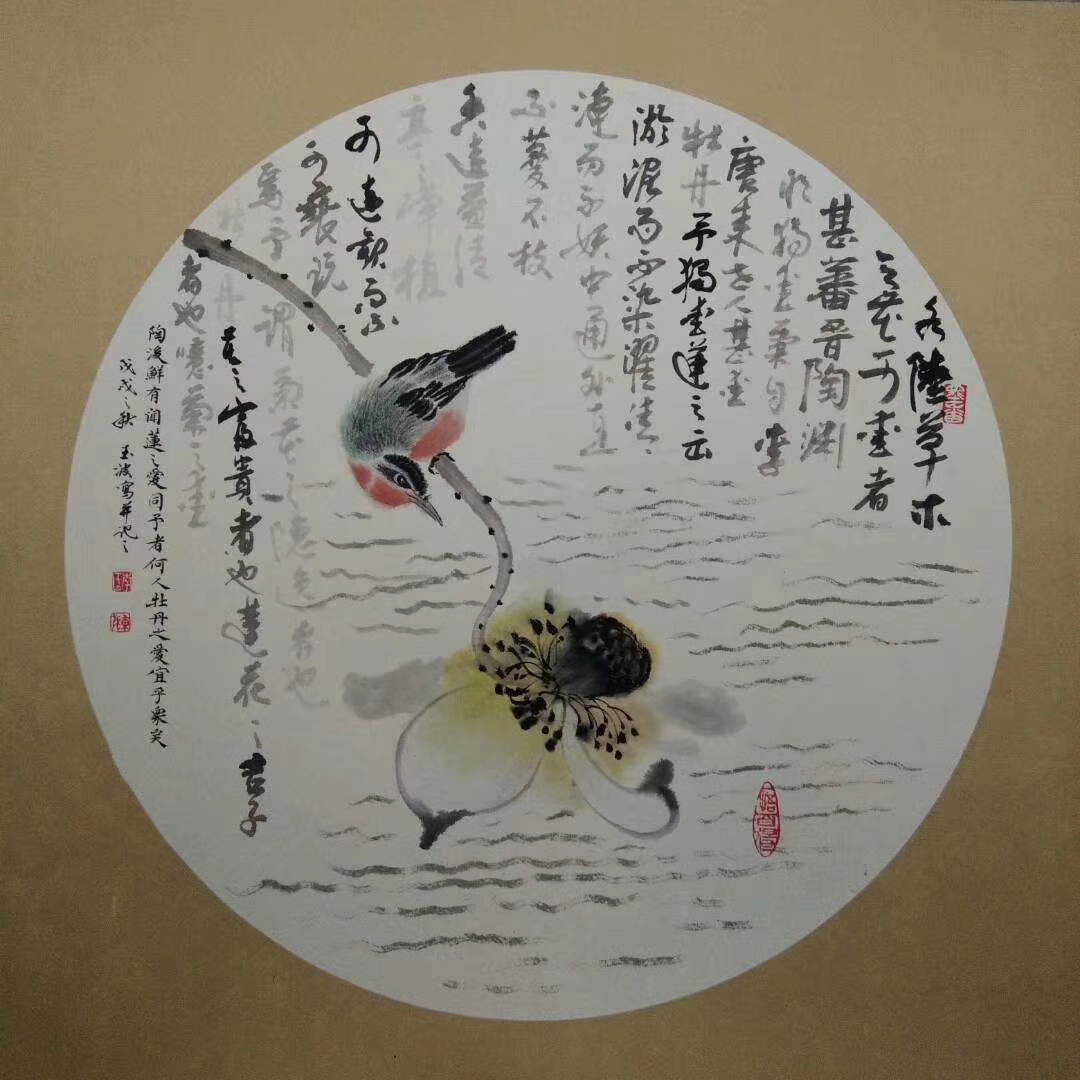 水陸草木
之花可愛者
甚蕃晋陶渊
明獨愛菊自李
唐来世人甚愛
牡丹予獨愛蓮之出
淤泥而不染濯清
漣而不妖中通外直
不蔓不枝
香遠益清
亭亭净植
可遠觀而不
可褻玩
焉予
謂菊花之隐逸者也
牡丹
花之富貴者也蓮花之君子
者也噫菊之愛
陶後鮮有闻蓮之愛同予者何人牡丹之愛宜乎衆矣
戊戌之秋 玉波寫并記之